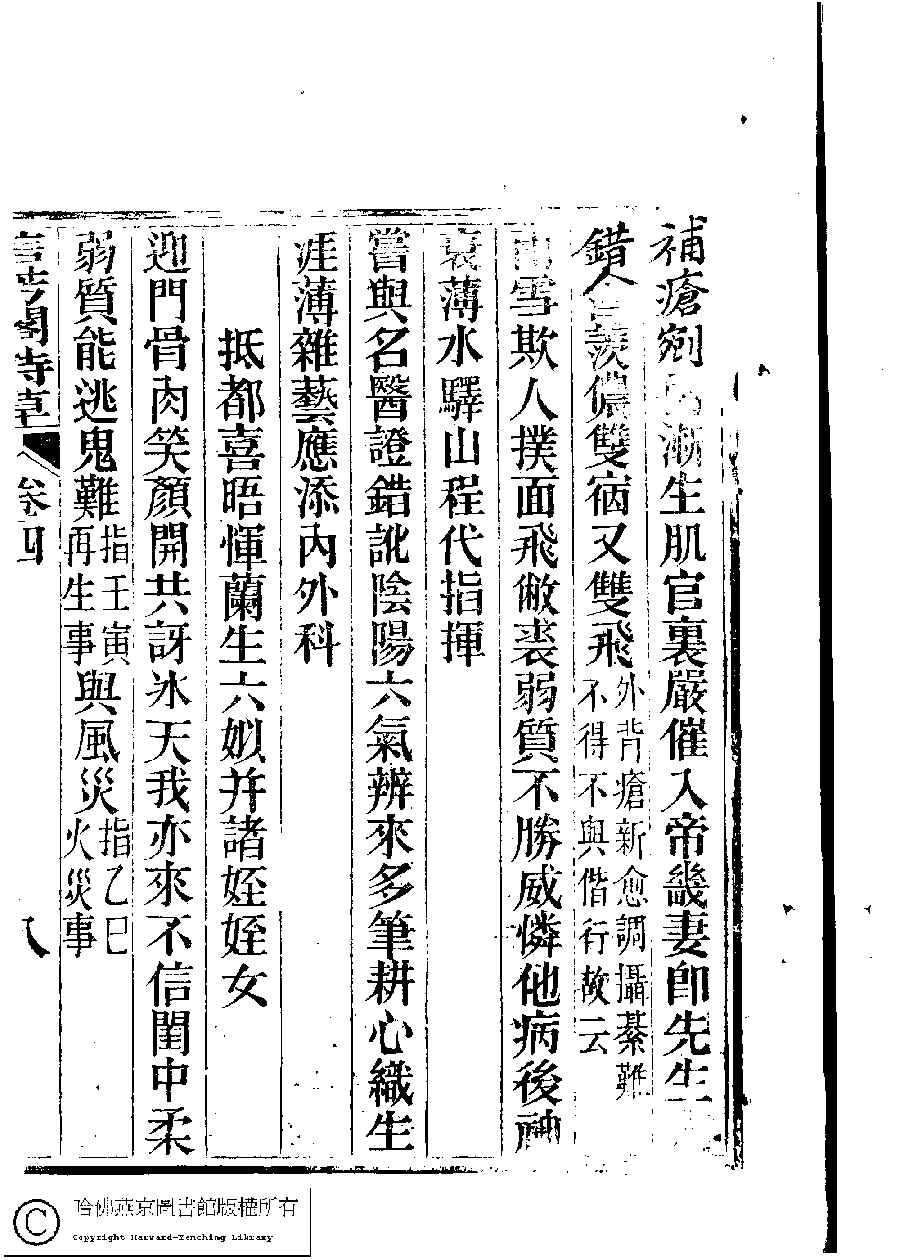 補瘡剜漸生肌官裏嚴催入帝畿妻卽先生
錯人羨儂雙宿又雙飛外背瘡新愈調攝綦難不得不與偕行故云
雪欺人撲面飛敝裘弱質不勝威憐他病後神
衰薄水驛山程代指揮
嘗與名醫證錯訛陰陽六氣辨來多筆耕心織生
涯薄雜藝應添內外科
抵都喜晤惲蘭生六姒并諸姪姪女
迎門骨肉笑顏開共訝冰天我亦來不信閨中柔
弱質能逃鬼難指壬寅再生事與風災指乙巳火災事
卷四
八
哈佛燕京圖書館版權所有
Copyright Harvard-Yenching Library